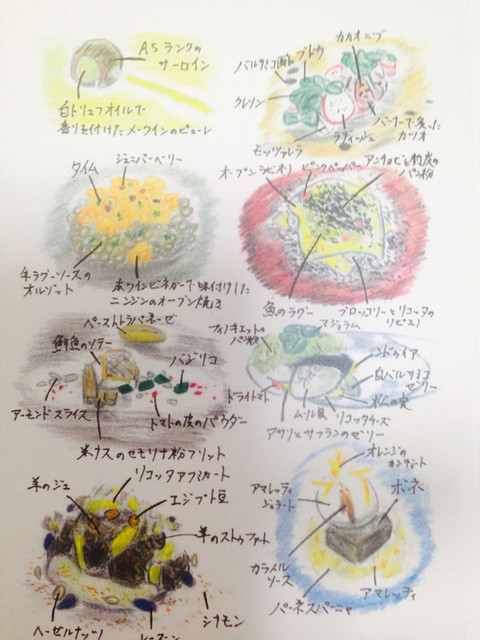 A5ランクの
サーロイン
白トリュフオイルで
香りを付けたメークインのピューレ
カカオニブ
ブドウ
バルサミコ酢
クレソン
バーナーで炙った
カツオ
ラディッシュ
モッツァレラ
ジュニパーベリー
タイム
牛ラグーソースの
オルゾット
赤ワインビネガーで味付けした
ニンジンのオーブン焼き
オープンラビオリ
ピンクペッパー
アンチョビと
パン粉
魚のラグー
ブロッコリーとリコッタの
リピエノ
ペーストトラパネーゼ
鮮魚のソテー
バジリコ
アーモンドスライス
トマトの皮のパウダー
米ナスのセモリナ粉フリット
フィノキエットの
パン粉
マジョラム
ンドゥイア
白バルサミコ
ゼリー
ドライトマト
松の実
ムール貝
リコッタチーズ
アサリとサフランのゼリー
リコッタアフミカート
羊のジュ
エジプト豆
羊のストゥファート
シナモン
ヘーゼルナッツ
レーズン
オレンジの
アマレッティ
ジェラート
ボネ
カラメル
ソース
アマレッティ
パーネスパーニャ